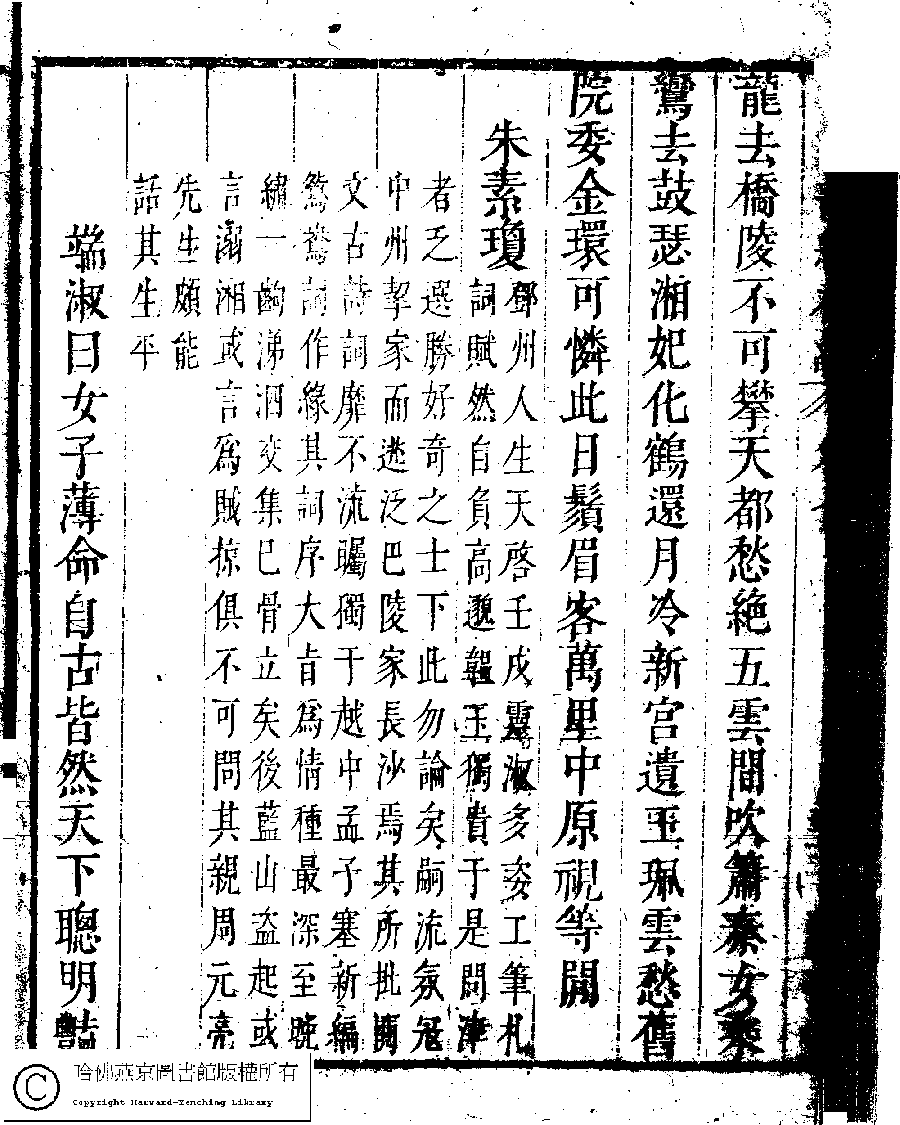 龍去橋陵不可攀天都愁絶五雲間吹簫秦女乘
鸞去鼓瑟湘妃化鶴還月冷新宮遺玉珮雲愁舊
院委金環可憐此日鬚眉客萬里中原視等閒
朱素瓊
鄧州人生天啓壬戌靈淑多姿工筆札
詞賦然自負高邈韞玉獨貴于是問津
者乏選勝好奇之士下此勿論矣嗣流氛冦
中州挈家而逃泛巴陵家長沙焉其所批閱
文古詩詞靡不流矚獨于越中孟子塞新編
鴛鴦詞作緣其詞序大旨爲情種最深至晩
繡一齣涕泗交集已骨立矣後藍山盗起或
言溺湘或言爲賊掠俱不可問其親周元亮
先生頗能
話其生平
端淑曰女子薄命自古皆然天下聰明豔
哈佛燕京圖書館版權所有
Copyright Harvard-Yenching Library